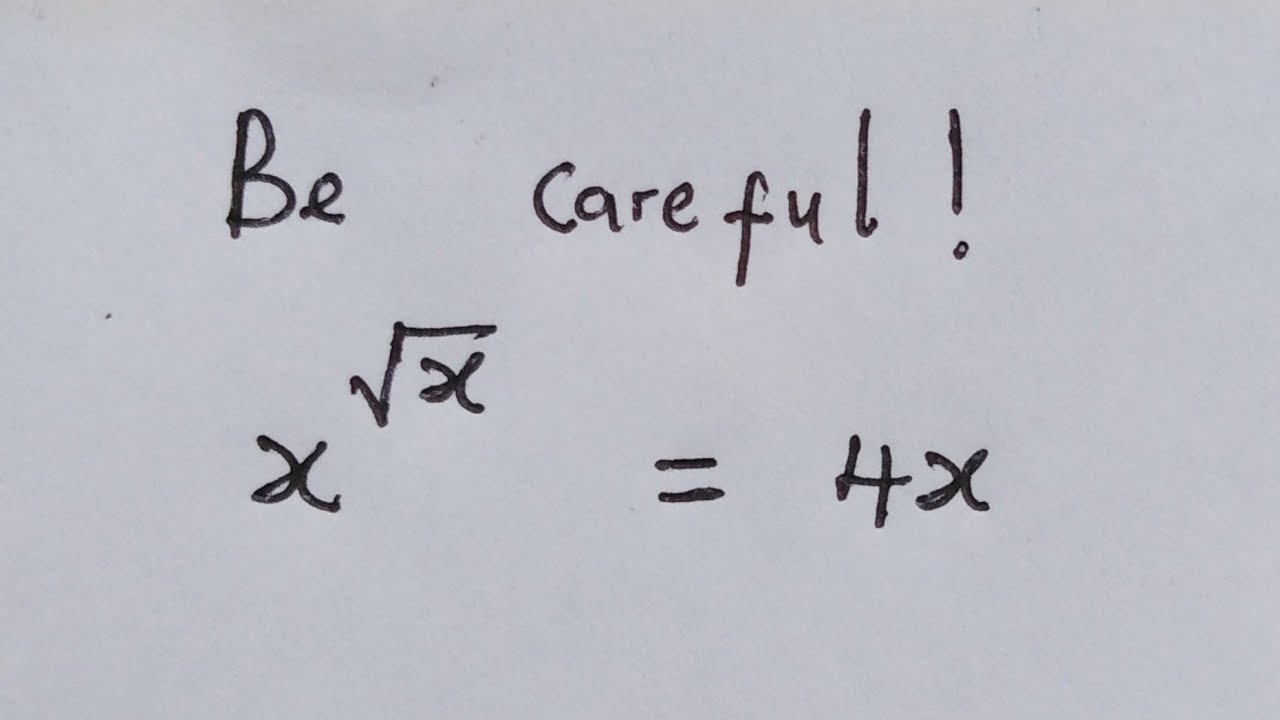 Be careful!
x^√x = 4x